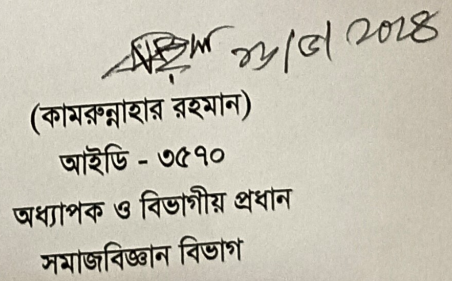 (কামরুন্নাহার রহমান)
আইডি - ৩৫৭০
অধ্যাপক ও বিভাগীয় প্রধান
সমাজবিজ্ঞান বিভাগ